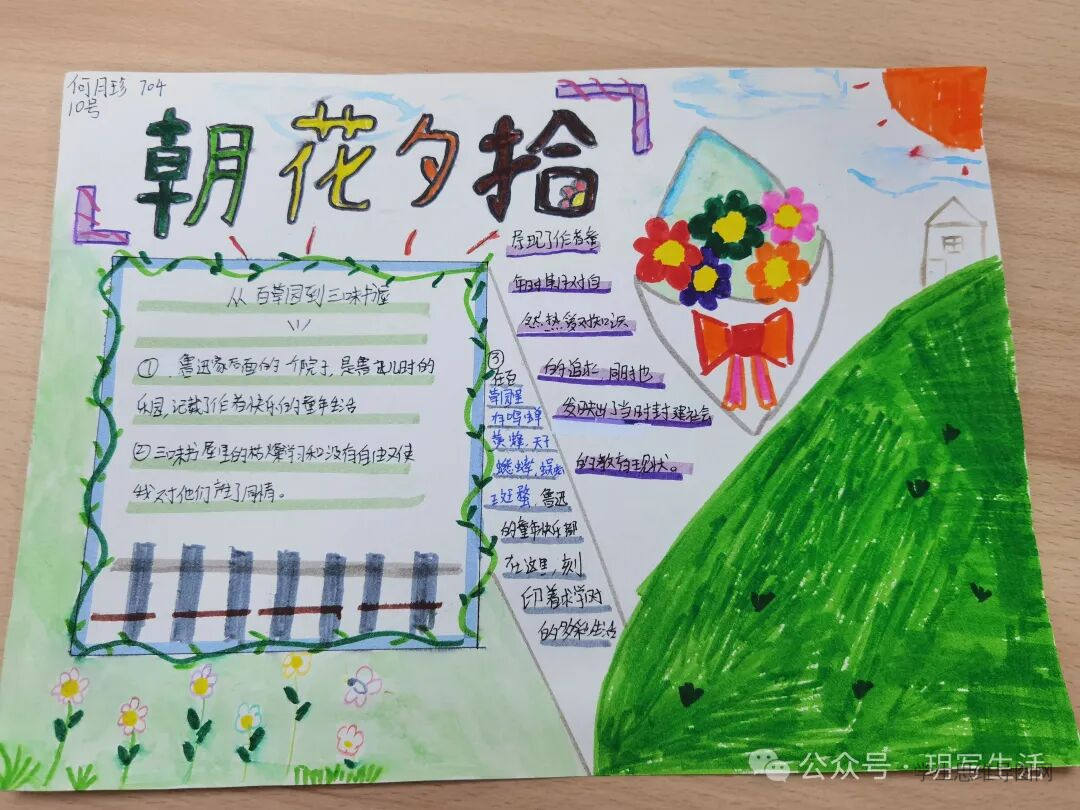 何月珍 704
10号
朝花夕拾
从百草园到三味书屋
①、鲁迅家后面的一个院子,是鲁迅儿时的
乐园,记载了作者快乐的童年生活
②三味书屋里的枯燥学习和没有自由又使
我对他们产生了同情。
③
在百
草园里
有鸣蝉
黄蜂,天子
蟋蟀,蜈蚣
斑蝥,鲁迅
的童年快乐都
在这里,刻
印着求学时
的多彩生活
展现了作者童
年时期对自
然热爱对知识
的追求,同时也
反映出了当时封建社会
的教育现状。
公众号·玥写生活